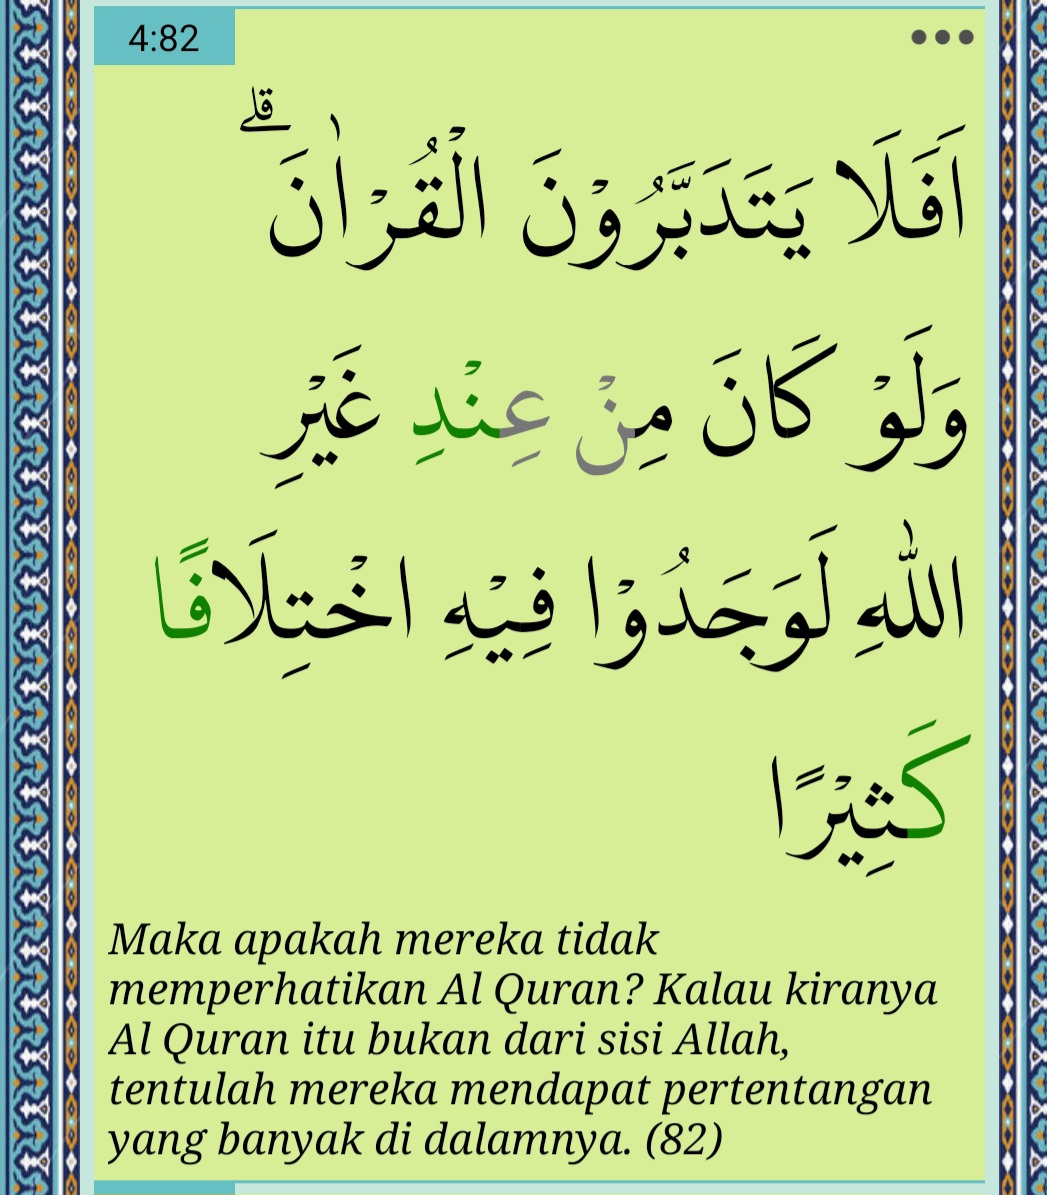 4:82
اَفَلَا يَتَدَبَّرُوْنَ الْقُرْاٰنَ ۗ
وَلَوْ كَانَ مِنْ عِنْدِ غَيْرِ
اللّٰهِ لَوَجَدُوْا فِيْهِ اخْتِلَافًا
كَثِيْرًا
Maka apakah mereka tidak
memperhatikan Al Quran? Kalau kiranya
Al Quran itu bukan dari sisi Allah,
tentulah mereka mendapat pertentangan
yang banyak di dalamnya. (82)